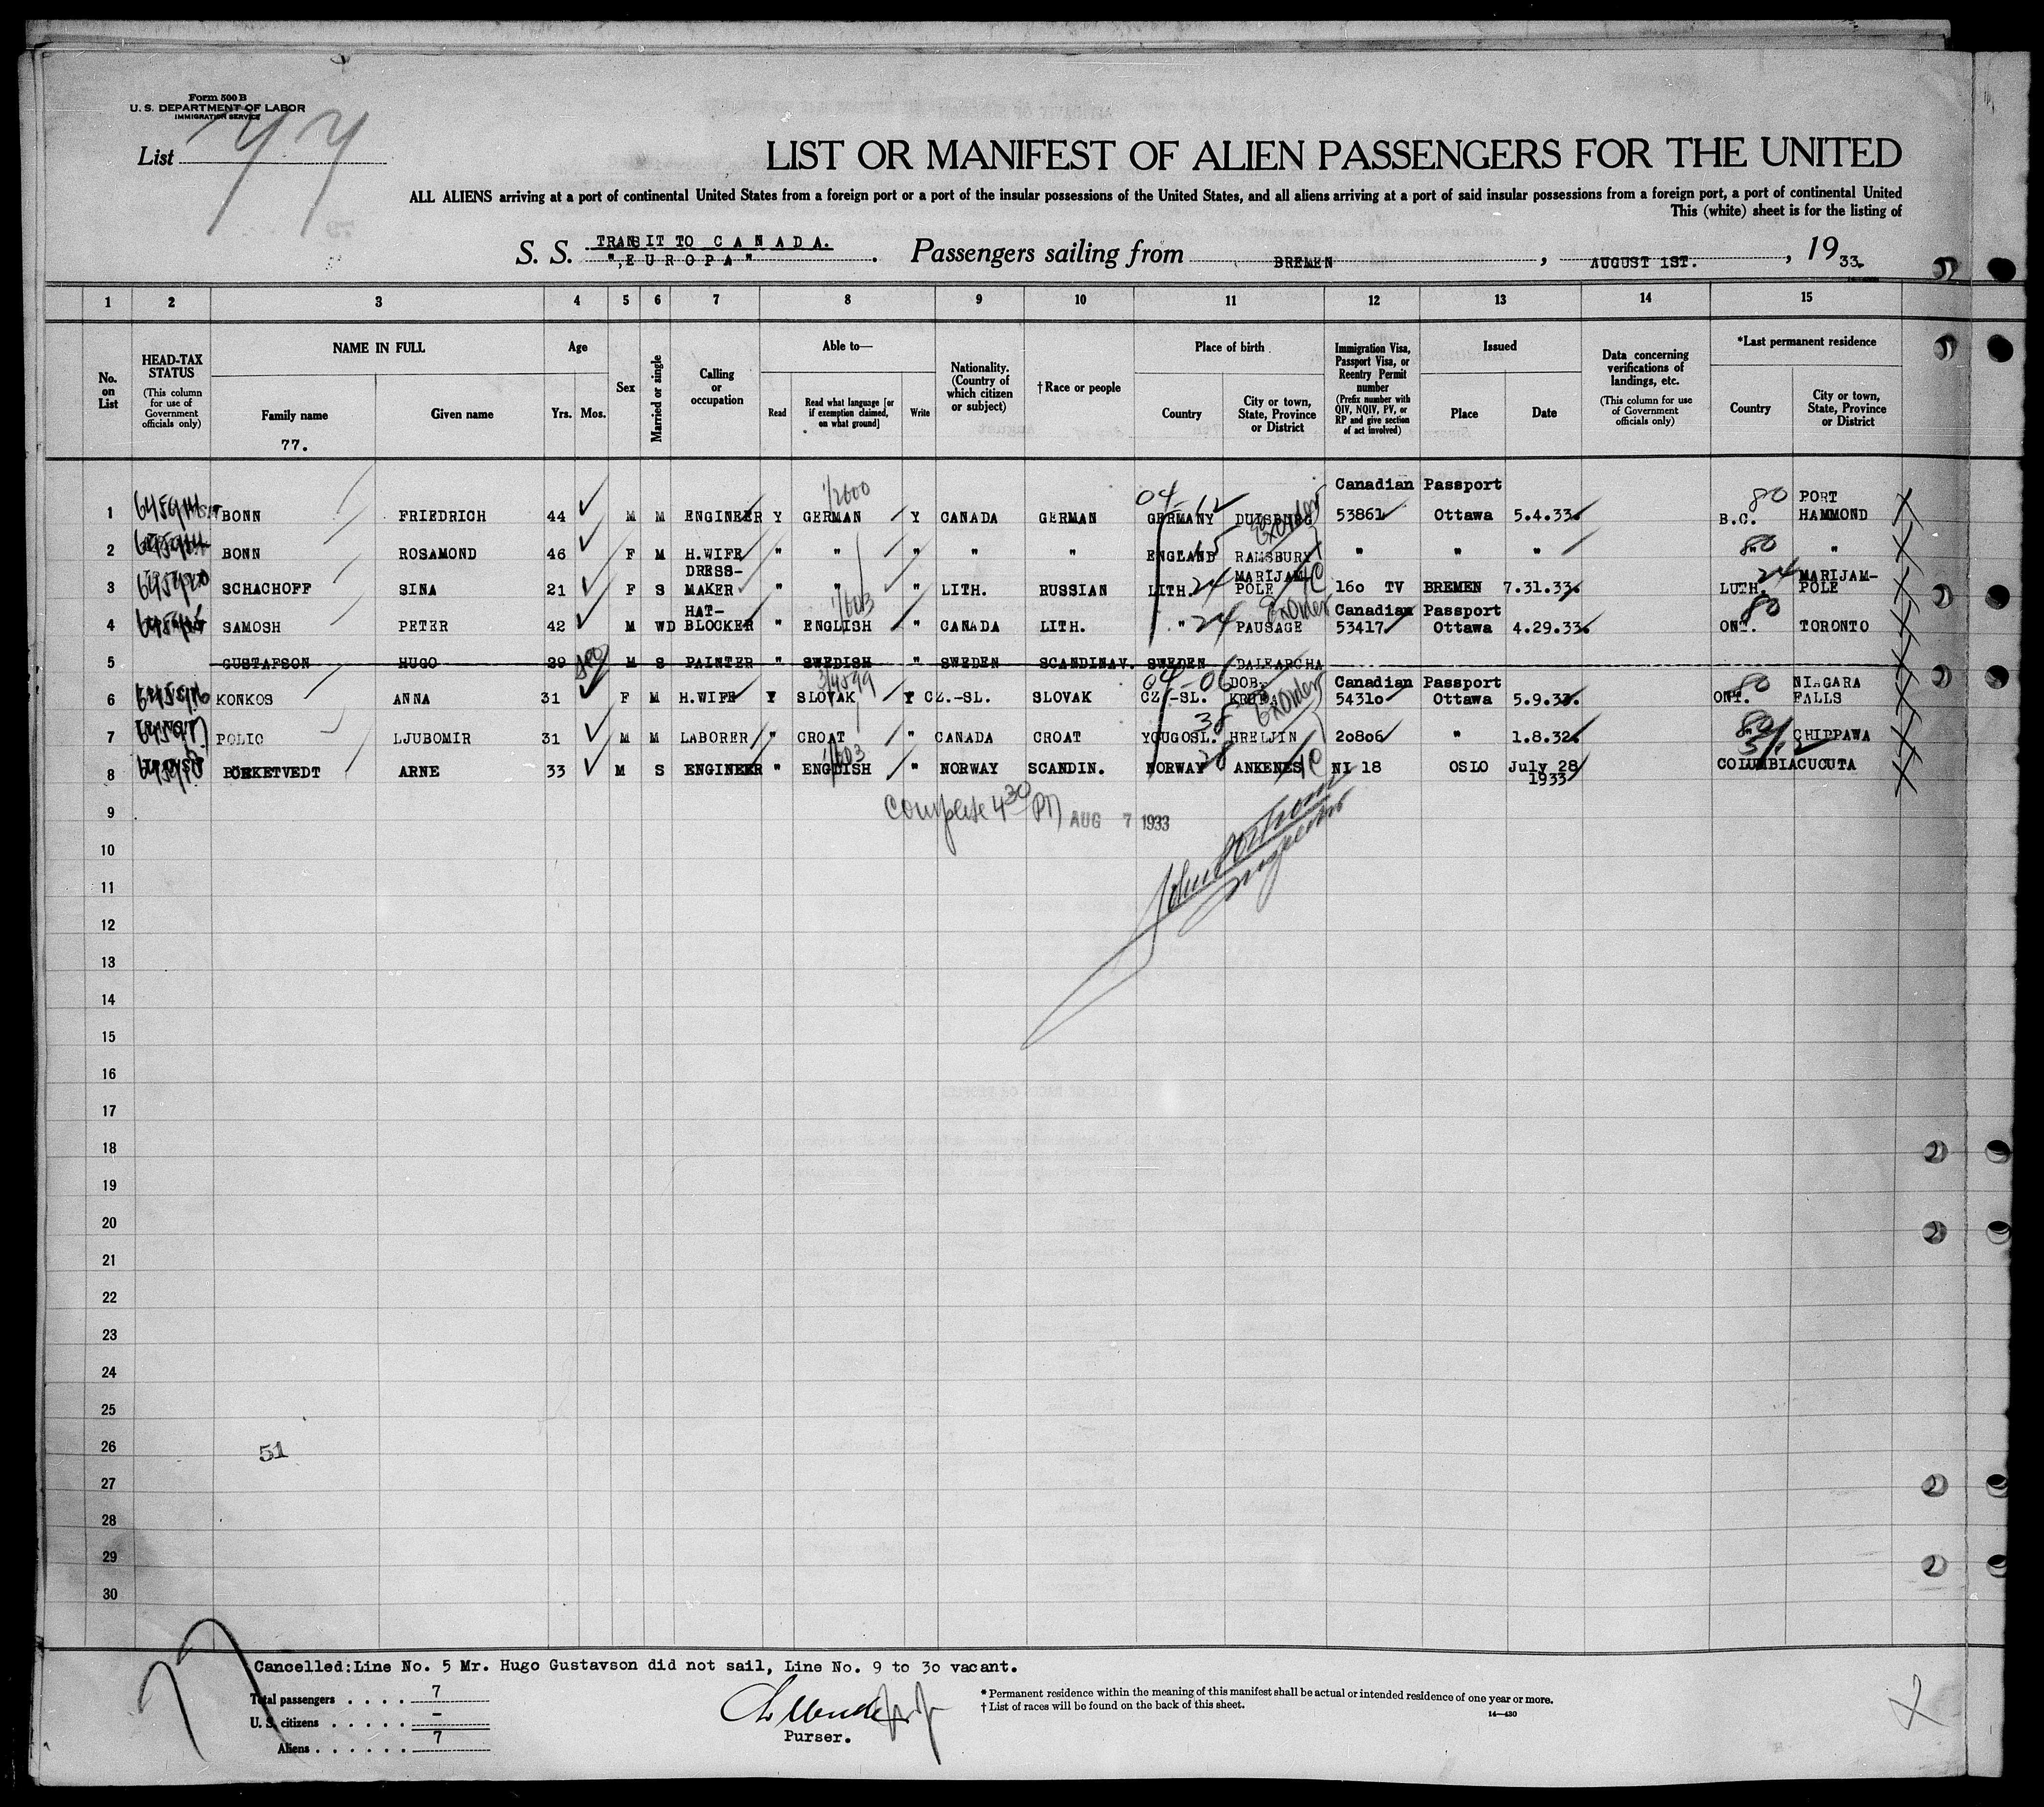 Form 500 B
U. S. DEPARTMENT OF LABOR
IMMIGRATION SERVICE
List 77
LIST OR MANIFEST OF ALIEN PASSENGERS FOR THE UNITED
ALL ALIENS arriving at a port of continental United States from a foreign port or a port of the insular possessions of the United States, and all aliens arriving at a port of said insular possessions from a foreign port, a port of continental United
This (white) sheet is for the listing of
TRANSIT TO CANADA.
S. S. "EUROPA". Passengers sailing from BREMEN, AUGUST 1ST., 1933.
1 2 3 4 5 6 7 8 9 10 11 12 13 14 15
No. on List
HEAD-TAX STATUS (This column for use of Government officials only)
NAME IN FULL
Family name
77.
Given name
Age
Yrs. Mos.
Sex
Married or single
Calling or occupation
Able to—
Read
Read what language [or if exemption claimed, on what ground]
Write
Nationality. (Country of which citizen or subject)
† Race or people
Place of birth
Country
City or town, State, Province or District
Immigration Visa, Passport Visa, or Reentry Permit number (Prefix number with QIV, NQIV, PV, or RP and give section of act involved)
Issued
Place
Date
Data concerning verifications of landings, etc. (This column for use of Government officials only)
*Last permanent residence
Country
City or town, State, Province or District
Canadian Passport
1 BONN FRIEDRICH 44 M M ENGINEER Y GERMAN Y CANADA GERMAN GERMANY DUISBURG 53861 Ottawa 5.4.33. B.C. PORT HAMMOND
2 BONN ROSAMOND 46 F M H.WIFE " " " " " ENGLAND RAMSBURY " " " " "
3 SCHACHOFF SINA 21 F S DRESS-MAKER " " " LITH. RUSSIAN LITH. MARIJAM-POLE 160 TV BREMEN 7.31.33. LUTH. MARIJAM-POLE
Canadian Passport
4 SAMOSH PETER 42 M WD HAT-BLOCKER " ENGLISH " CANADA LITH. " PAUSAGE 53417 Ottawa 4.29.33. ONT. TORONTO
5 GUSTAFSON HUGO 29 M S PAINTER " SWEDISH " SWEDEN SCANDINAV. SWEDEN DALEARCHA
Canadian Passport
6 KONKOS ANNA 31 F M H.WIFE Y SLOVAK Y CZ.-SL. SLOVAK CZ.-SL. DOB. 54310 Ottawa 5.9.33. ONT. NIAGARA FALLS
7 POLIC LJUBOMIR 31 M M LABORER " CROAT " CANADA CROAT YOUGOSL. HRELJIN 20806 " 1.8.32. " CHIPPAWA
8 ARNE 33 M S ENGINEER " ENGLISH " NORWAY SCANDIN. NORWAY ANKENES NI 18 OSLO July 28 1933 COLUMBIA CUCUTA
9
Complete 4 30 PM AUG 7 1933
10
11
12
13
14
15
16
17
18
19
20
21
22
23
24
25
26
51
27
28
29
30
77
Cancelled:Line No. 5 Mr. Hugo Gustavson did not sail, Line No. 9 to 30 vacant.
Total passengers . . . . 7
U. S. citizens . . . . . –
Aliens . . . . . . 7
Purser.
* Permanent residence within the meaning of this manifest shall be actual or intended residence of one year or more.
† List of races will be found on the back of this sheet.
14—430